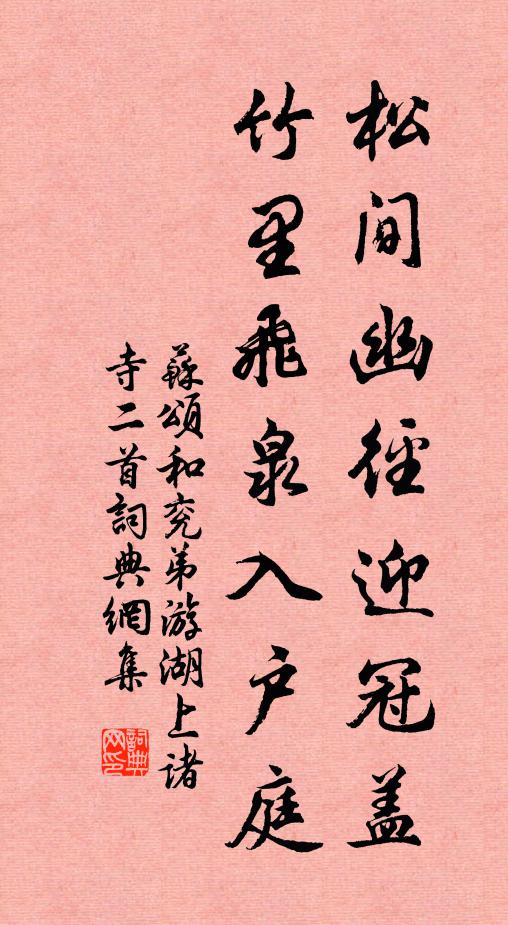 松间幽径迎冠盖
竹里飛泉入户庭
蘇頌和兖弟游湖上諸
寺二首詞典網集
詞典网印